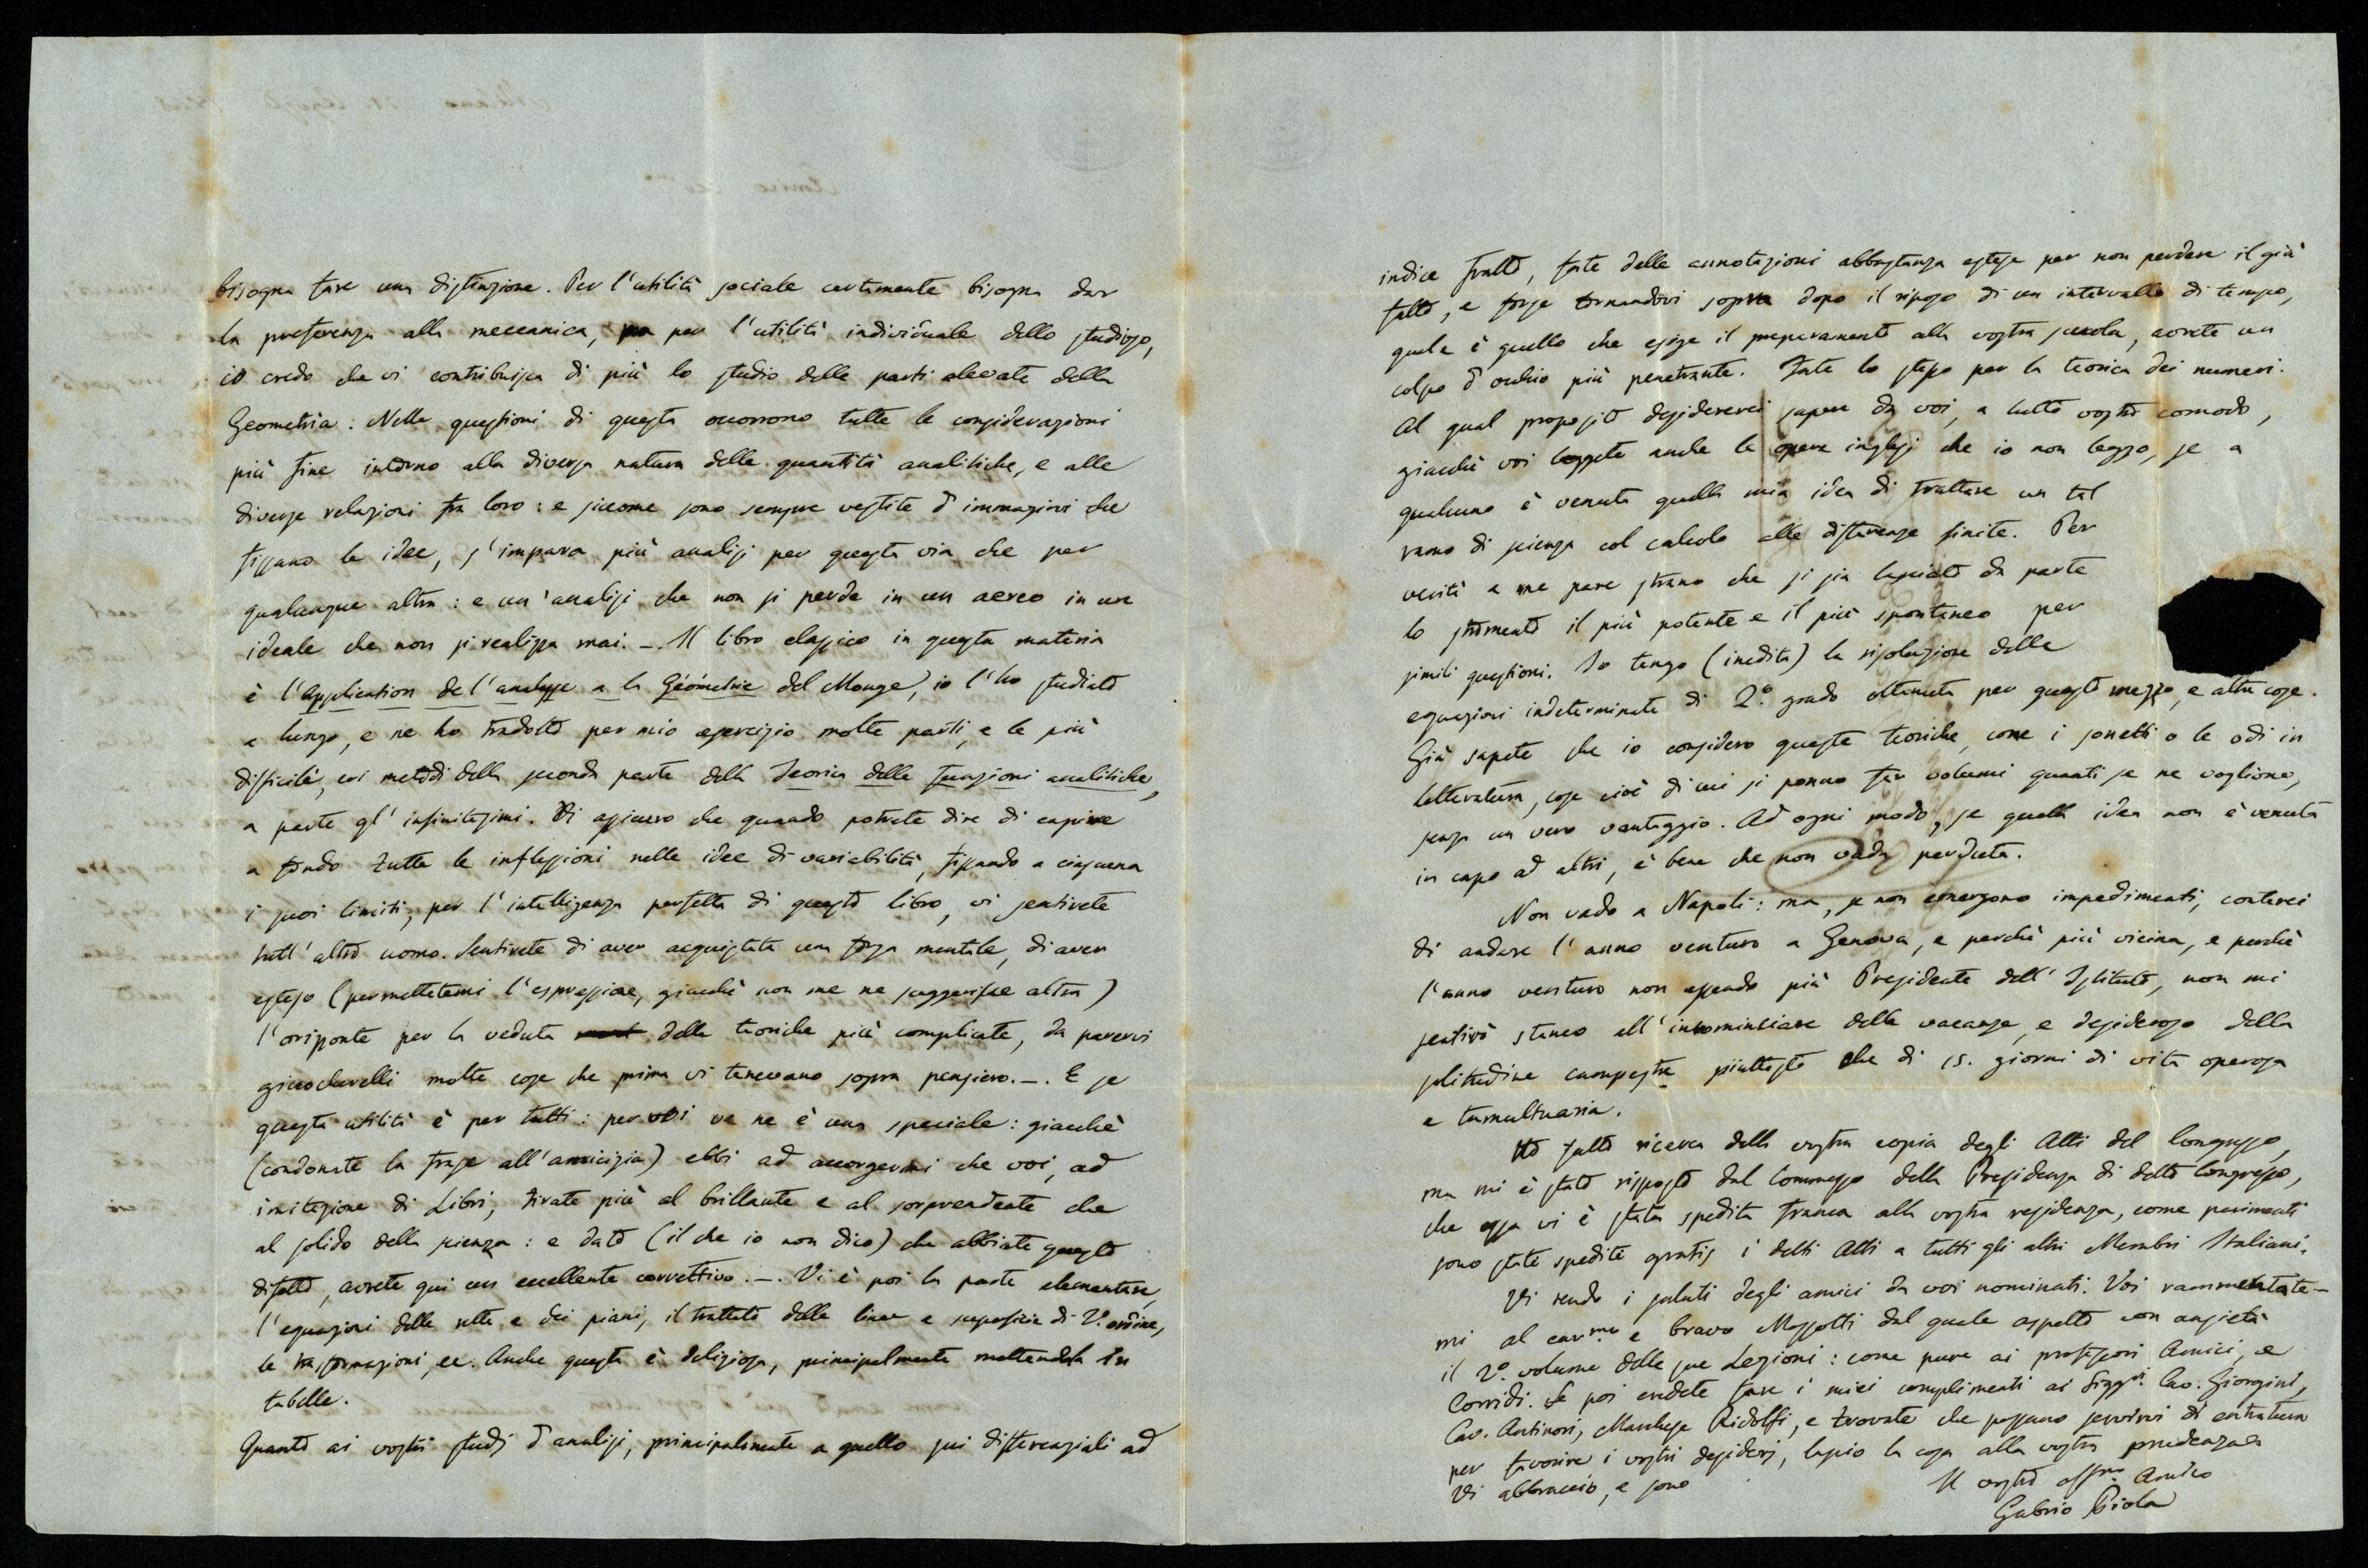 bisogna fare una distinzione. Per l'utilità sociale certamente bisogna dar
la preferenza alla meccanica, ma per l'utilità individuale dello studioso,
io credo che vi contribuisca di più lo studio delle parti elevate della
Geometria. Nelle questioni di questa occorrono tutte le considerazioni
più fine intorno alla diversa natura delle quantità analitiche, e alle
diverse relazioni fra loro: e siccome sono sempre vestite d'immagini che
fissano le idee, s'impara più analisi per questa via che per
qualunque altra: e un'analisi che non si perde in un aereo in un
ideale che non si realizza mai. _. Il libro classico in questa materia
è l'Application de l'analyse a la Géométrie del Monge, io l'ho studiato
a lungo, e ne ho tradotto per mio esercizio molte parti, e le più
difficili, coi metodi della seconda parte della Teorica delle funzioni analitiche,
a parte gl'infinitesimi. Vi assicuro che quando potrete dire di capire
a fondo tutte le inflessioni nelle idee di variabilità, fissando a ciascuna
i suoi limiti, per l'intelligenza perfetta di questo libro, vi sentirete
tutt'altro uomo. Sentirete di aver acquistata una forza mentale, di aver
esteso (permettetemi l'espressione, giacchè non me ne suggerisce altra)
l'orizzonte per la veduta delle teoriche più complicate, da parervi
giuocherelli molte cose che prima vi tenevano sopra pensiero. _. E se
questa utilità è per tutti: per voi ve ne è una speciale: giacchè
(condonate la frase all'amicizia) ebbi ad accorgermi che voi, ad
imitazione di Libri, tirate più al brillante e al sorprendente che
al solido della scienza: e dato (il che io non dico) che abbiate questo
difetto, avrete qui un eccellente correttivo. _. Vi è poi la parte elementare,
l'equazioni delle rette e dei piani, il trattato delle linee e superficie di 2.° ordine,
le trasformazioni, ec. Anche questa è deliziosa, principalmente mettendola in
tabelle.
Quanto ai vostri studj d'analisi, principalmente a quello sui differenziali ad
indice fratto, fate delle annotazioni abbastanza estese per non perdere il già
fatto, e forse tornandovi sopra dopo il riposo di un intervallo di tempo,
quale è quello che esige il preparamento alla vostra scuola, avrete un
colpo d'occhio più penetrante. Fate lo stesso per la teorica dei numeri.
Al qual proposito desidererei sapere da voi, a tutto vostro comodo,
giacchè voi leggete anche le opere inglesi che io non leggo, se a
qualcuno è venuta quella mia idea di trattare un tal
ramo di scienza col calcolo alle differenze finite. Per
verità a me pare strano che si sia lasciato da parte
lo stromento il più potente e il più spontaneo per
simili questioni. Io tengo (inedita) la risoluzione delle
equazioni indeterminate di 2.° grado ottenuta per questo mezzo, e altre cose.
Già sapete che io considero queste teoriche, come i sonetti o le odi in
letteratura, cose cioè di cui si ponno far volumi quanti se ne vogliono,
senza un vero vantaggio. Ad ogni modo, se quella idea non è venuta
in capo ad altri, è bene che non vada perduta.
Non vado a Napoli: ma, se non emergono impedimenti, conterei
di andare l'anno venturo a Genova, e perchè più vicina, e perchè
l'anno venturo non essendo più Presidente dell'Istituto, non mi
sentirò stanco all'incominciare delle vacanze, e desideroso della
solitudine campestre piuttosto che di 15. giorni di vita operosa
e tumultuaria.
Ho fatto ricerca della vostra copia degli Atti del Congresso,
ma mi è stato risposto dal Commesso della Presidenza di detto Congresso,
che essa vi è stata spedita franca alla vostra residenza, come parimenti
sono state spedite gratis i detti Atti a tutti gli altri Membri Italiani.
Vi rendo i saluti degli amici da voi nominati. Voi rammentate-
mi al car.mo e bravo Mossotti dal quale aspetto con ansietà
il 2.° volume delle sue Lezioni: come pure ai professori Amici, e
Corridi. Se poi credete fare i miei complimenti ai Sigg.ri Cav. Giorgini,
Cav. Antinori, Marchese Ridolfi, e trovate che possano servirvi di entratura
per favorire i vostri desiderj, lascio la cosa alla vostra prudenza.
Vi abbraccio, e sono
Il vostro aff.mo Amico
Gabrio Piola